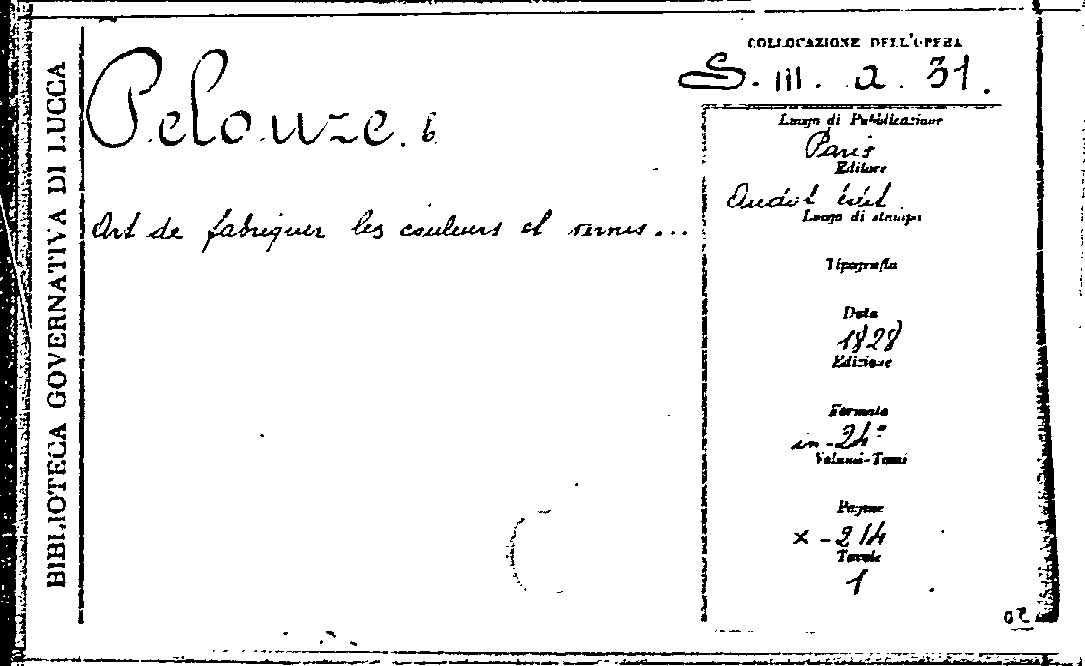 BIBLIOTECA GOVERNATIVA DI LUCCA
Pelouze. 6
Art de fabriquer les couleurs et vernis...
COLLOCAZIONE DELL'OPERA
S. III. a. 31.
Luogo di Pubblicazione
Paris
Editore
Audot édit.
Luogo di stampa
Tipografia
Data
1828
Edizione
Formato
in-24°
Volumi-Tomi
Pagine
x - 214
Tavole
1